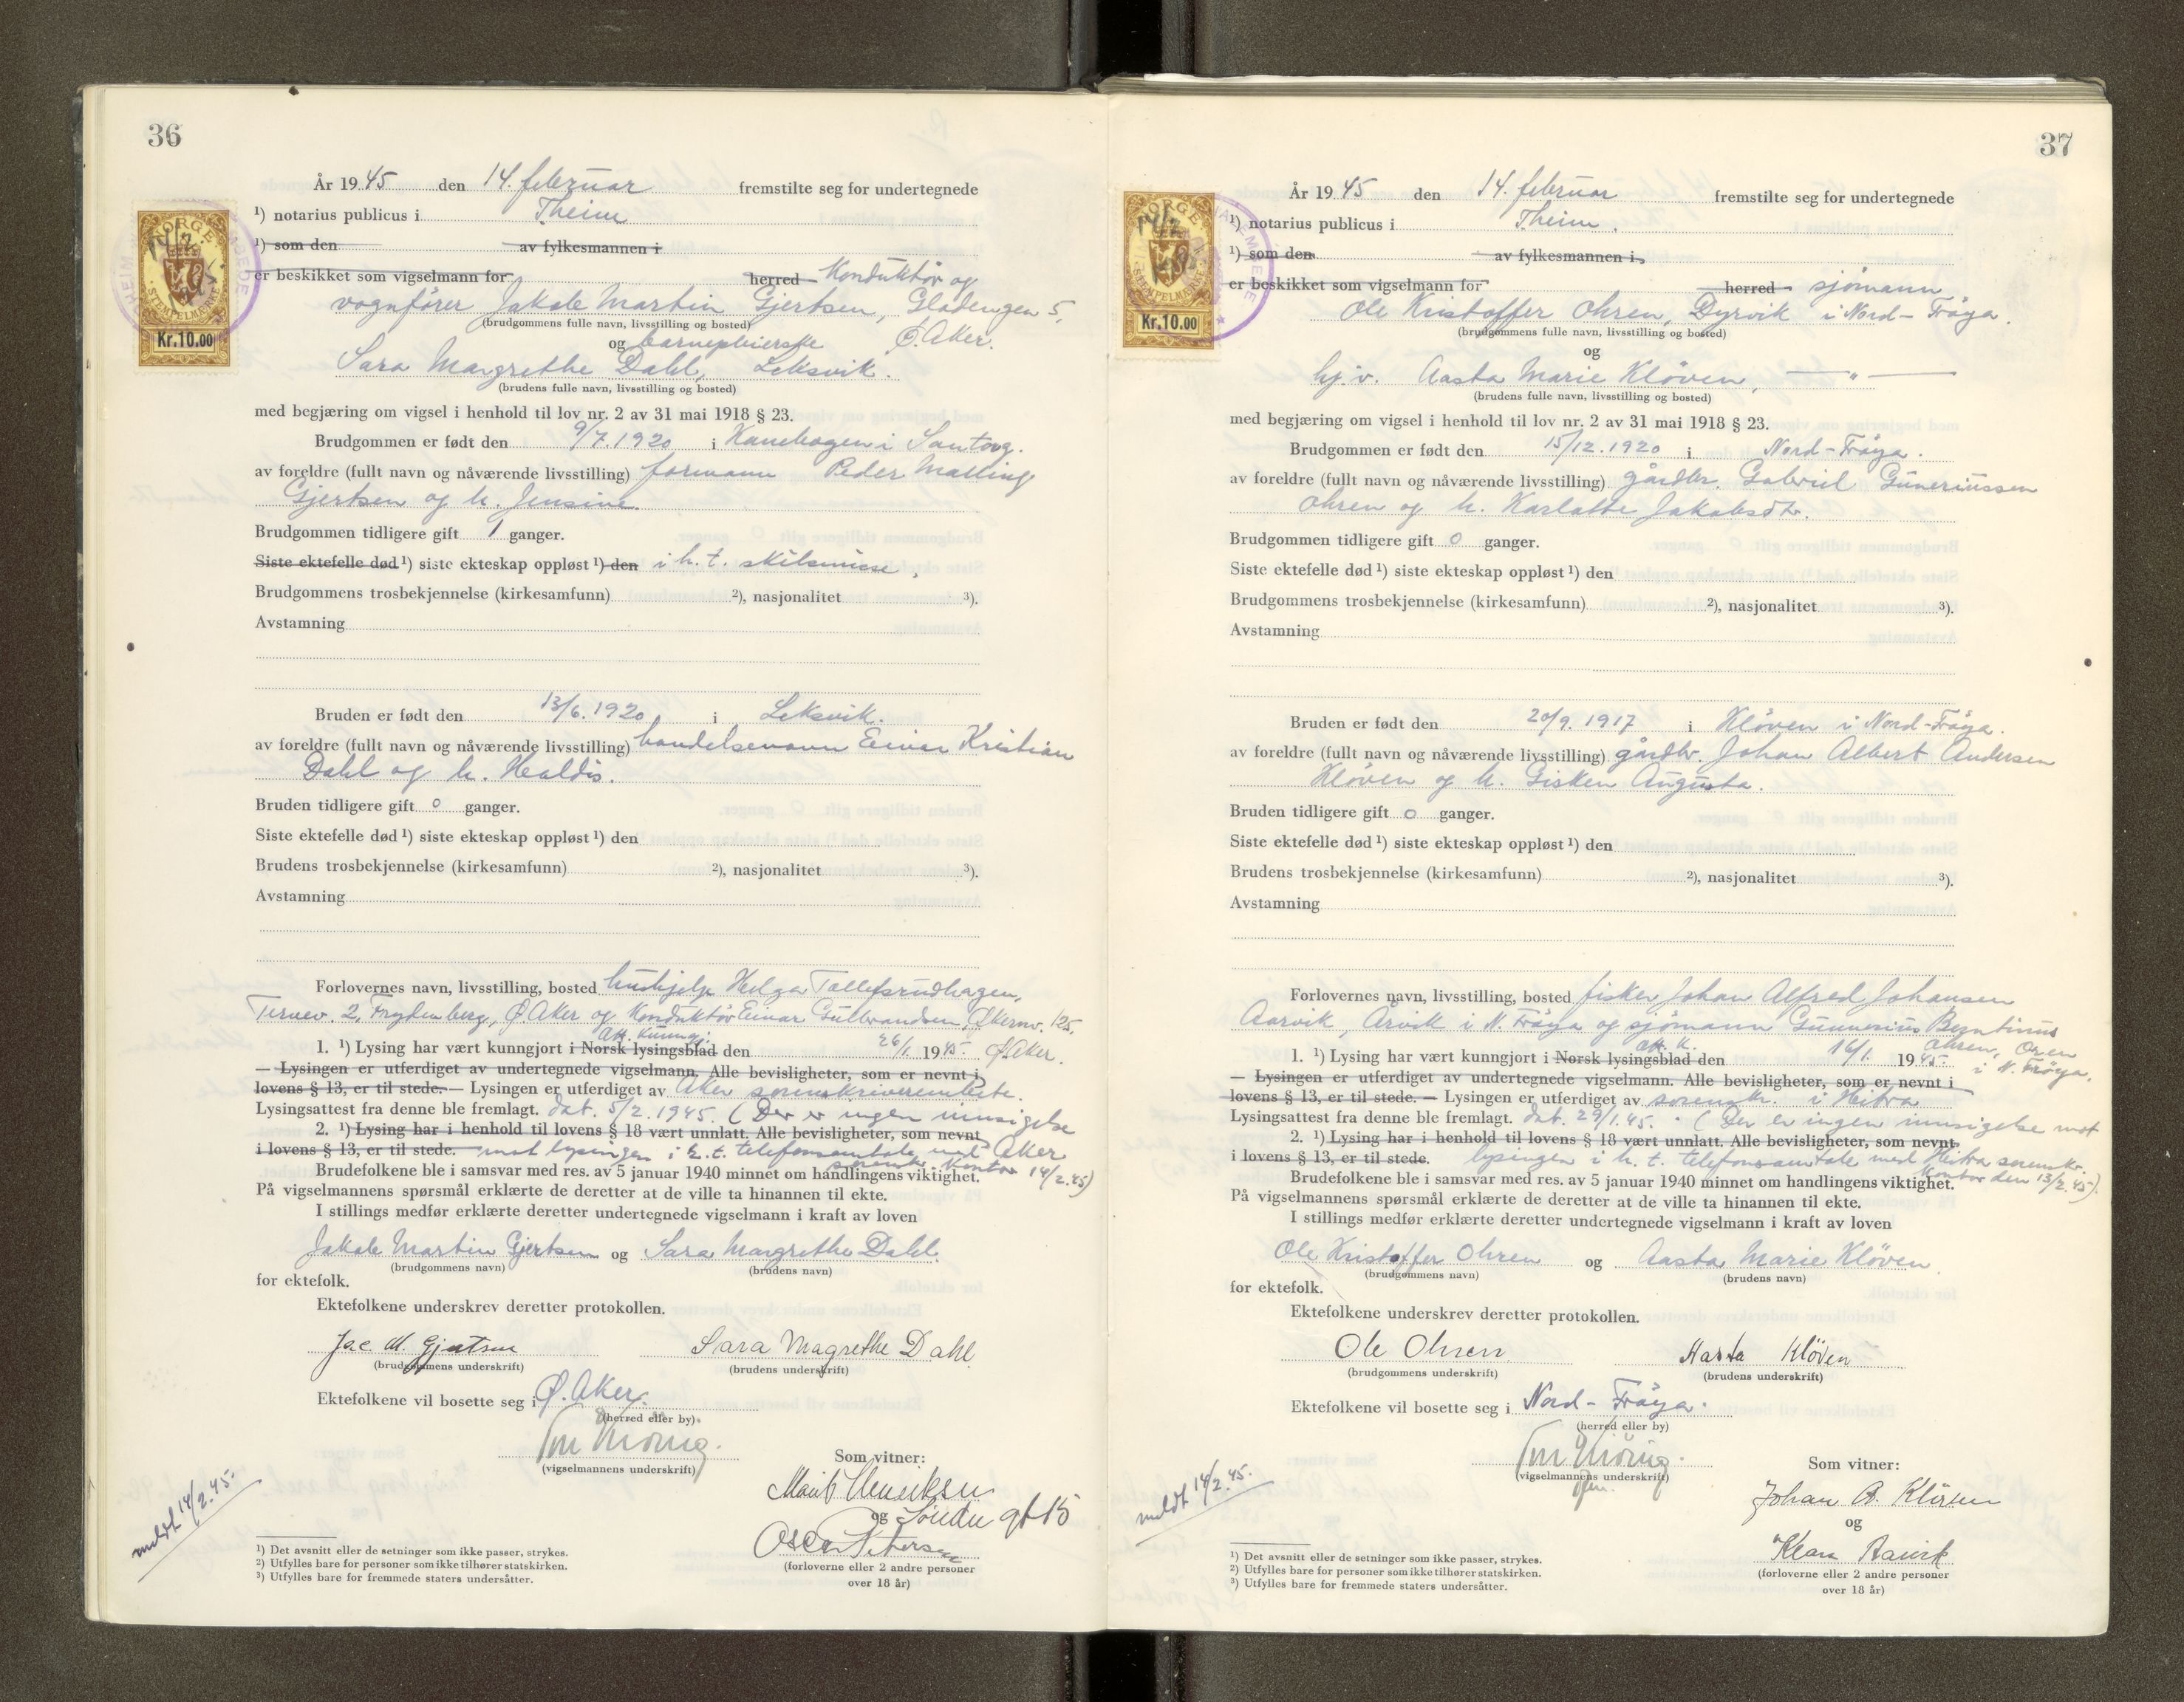 36
År 1945 den 14. februar fremstilte seg for undertegnede
¹) notarius publicus i Theim
¹) som den av fylkesmannen i
er beskikket som vigselmann for herred Konduktör og
vognförer Jakob Martin Gjertsen, Gladengen 5,
(brudgommens fulle navn, livsstilling og bosted)
og barnepleierske Ø. Aker.
Sara Margrethe Dahl, Leksvik.
(brudens fulle navn, livsstilling og bosted)
med begjæring om vigsel i henhold til lov nr. 2 av 31 mai 1918 § 23.
Brudgommen er født den 9/7.1920 i Kanebogen i Santorg.
av foreldre (fullt navn og nåværende livsstilling) formann Peder Malling
Gjertsen og h. Jensine
Brudgommen tidligere gift 1 ganger.
Siste ektefelle død ¹) siste ekteskap oppløst ¹) den i h. t. skilsmisse.
Brudgommens trosbekjennelse (kirkesamfunn) ²), nasjonalitet ³).
Avstamning
Bruden er født den 13/6.1920 i Leksvik.
av foreldre (fullt navn og nåværende livsstilling) handelsmann Einar Kristian
Dahl og h. Haldis.
Bruden tidligere gift 0 ganger.
Siste ektefelle død ¹) siste ekteskap oppløst ¹) den
Brudens trosbekjennelse (kirkesamfunn) ²), nasjonalitet ³).
Avstamning
Forlovernes navn, livsstilling, bosted hushjelp Helga Tollefsrudhagen,
Ternev. 2, Frydenberg, Ø. Aker og Konduktör Einar Gulbrandsen, Økernv. 125,
att. kunngj:
1. ¹) Lysing har vært kunngjort i Norsk lysingsblad den 26/1. 1945. Ø. Aker.
— Lysingen er utferdiget av undertegnede vigselmann. Alle bevisligheter, som er nevnt i
lovens § 13, er til stede. — Lysingen er utferdiget av Aker sorenskriverembete.
Lysingsattest fra denne ble fremlagt. dat. 5/2.1945. (Der er ingen innsigelse
2. ¹) Lysing har i henhold til lovens § 18 vært unnlatt. Alle bevisligheter, som nevnt
i lovens § 13, er til stede. mot lysingen i h. t. telefonsamtale med Aker
sorenskr. Kontor 14/2.45)
Brudefolkene ble i samsvar med res. av 5 januar 1940 minnet om handlingens viktighet.
På vigselmannens spørsmål erklærte de deretter at de ville ta hinannen til ekte.
I stillings medfør erklærte deretter undertegnede vigselmann i kraft av loven
Jakob Martin Gjertsen og Sara Margrethe Dahl.
(brudgommens navn) (brudens navn)
for ektefolk.
Ektefolkene underskrev deretter protokollen.
Jac M. Gjertsen Sara Magrethe Dahl.
(brudgommens underskrift) (brudens underskrift)
Ektefolkene vil bosette seg i Ø. Aker.
(herred eller by)
(vigselmannens underskrift)
Som vitner:
og
(forloverne eller 2 andre personer
over 18 år)
meldt 14/2.45.
¹) Det avsnitt eller de setninger som ikke passer, strykes.
²) Utfylles bare for personer som ikke tilhører statskirken.
³) Utfylles bare for fremmede staters undersåtter.
NORGE
STEMPELMERKE
Kr.10.00
37
År 1945 den 14. februar fremstilte seg for undertegnede
¹) notarius publicus i Theim.
¹) som den av fylkesmannen i
er beskikket som vigselmann for herred sjömann
Ole Kristoffer Ohren, Dyrvik i Nord-Fröya.
(brudgommens fulle navn, livsstilling og bosted)
og
hj.v. Aasta Marie Klöven, — " —
(brudens fulle navn, livsstilling og bosted)
med begjæring om vigsel i henhold til lov nr. 2 av 31 mai 1918 § 23.
Brudgommen er født den 15/12.1920 i Nord-Fröya.
av foreldre (fullt navn og nåværende livsstilling) gårdbr. Gabriel Guneriussen
Ohren og h. Karlotte Jakobsdtr.
Brudgommen tidligere gift 0 ganger.
Siste ektefelle død ¹) siste ekteskap oppløst ¹) den
Brudgommens trosbekjennelse (kirkesamfunn) ²), nasjonalitet ³).
Avstamning
Bruden er født den 20/9.1917 i Klöven i Nord-Fröya.
av foreldre (fullt navn og nåværende livsstilling) gårdbr. Johan Albert Andersen
Klöven og h. Gisken Augusta.
Bruden tidligere gift 0 ganger.
Siste ektefelle død ¹) siste ekteskap oppløst ¹) den
Brudens trosbekjennelse (kirkesamfunn) ²), nasjonalitet ³).
Avstamning
Forlovernes navn, livsstilling, bosted fisker Johan Alfred Johansen
Aarvik, Årvik i N. Fröya og sjömann Gunnerius Berntinus
att. k. Ohren, Oren
1. ¹) Lysing har vært kunngjort i Norsk lysingsblad den 16/1. 1945. i N. Fröya.
— Lysingen er utferdiget av undertegnede vigselmann. Alle bevisligheter, som er nevnt i
lovens § 13, er til stede. — Lysingen er utferdiget av sorenskr. i Hitra
Lysingsattest fra denne ble fremlagt. dat. 29/1.45. (Der er ingen innsigelse mot
2. ¹) Lysing har i henhold til lovens § 18 vært unnlatt. Alle bevisligheter, som nevnt
i lovens § 13, er til stede. lysingen i h. t. telefonsamtale med Hitra sorenskr.
kontor den 13/2.45).
Brudefolkene ble i samsvar med res. av 5 januar 1940 minnet om handlingens viktighet.
På vigselmannens spørsmål erklærte de deretter at de ville ta hinannen til ekte.
I stillings medfør erklærte deretter undertegnede vigselmann i kraft av loven
Ole Kristoffer Ohren og Aasta Marie Klöven
(brudgommens navn) (brudens navn)
for ektefolk.
Ektefolkene underskrev deretter protokollen.
Ole Ohren Aasta Klöven
(brudgommens underskrift) (brudens underskrift)
Ektefolkene vil bosette seg i Nord-Fröya.
(herred eller by)
(vigselmannens underskrift)
Som vitner:
Johan A. Klöven
og
Klara Aarvik
(forloverne eller 2 andre personer
over 18 år)
meldt 14/2.45.
¹) Det avsnitt eller de setninger som ikke passer, strykes.
²) Utfylles bare for personer som ikke tilhører statskirken.
³) Utfylles bare for fremmede staters undersåtter.
NORGE
STEMPELMERKE
Kr.10.00